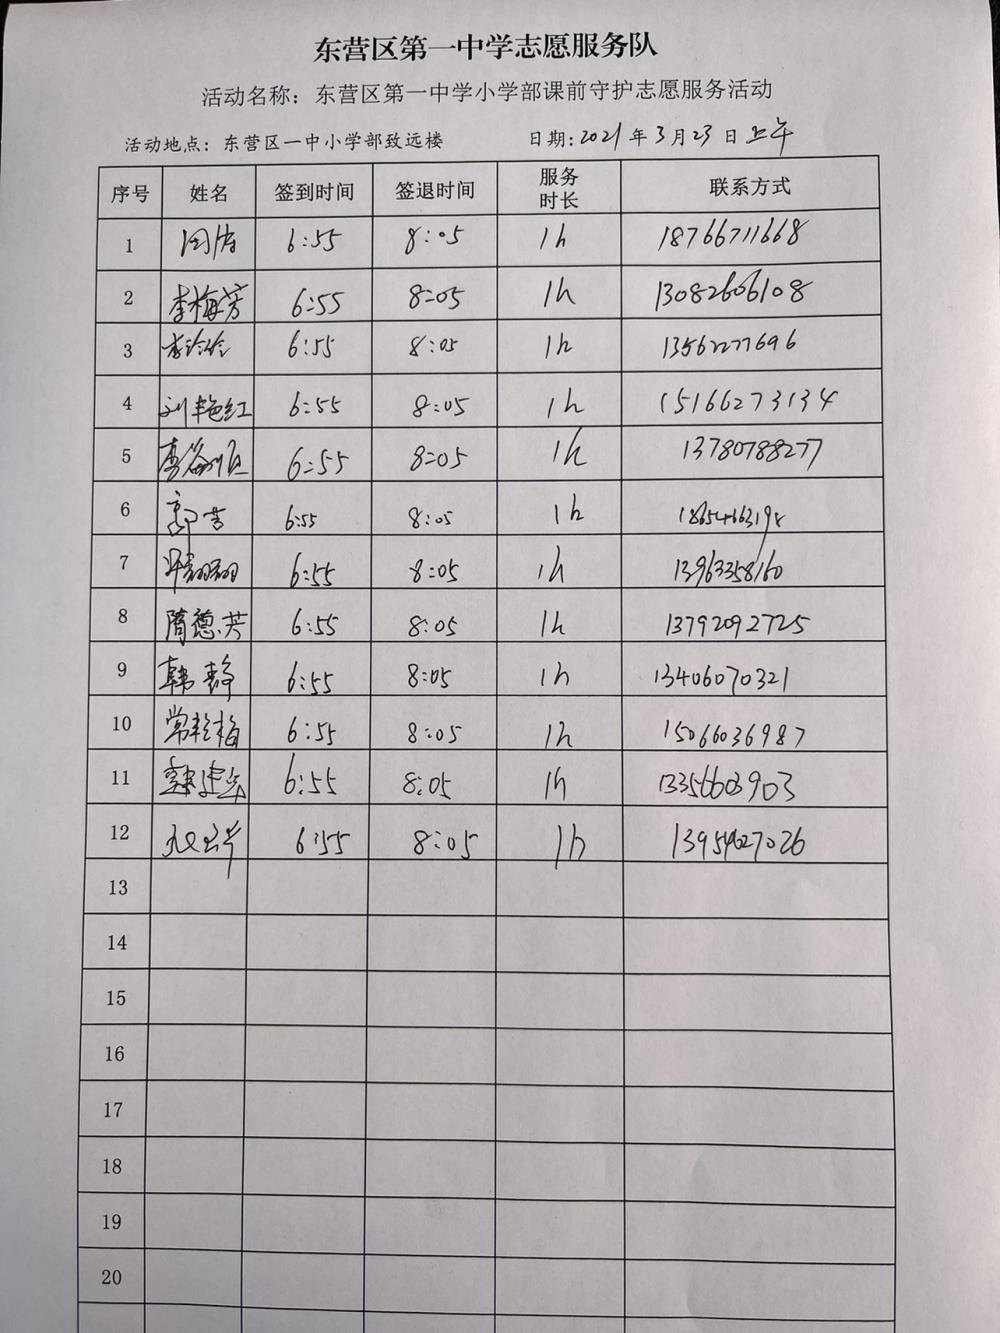 东营区第一中学志愿服务队
活动名称：东营区第一中学小学部课前守护志愿服务活动
活动地点：东营区一中小学部致远楼 日期：2021年3月23日上午
序号 姓名 签到时间 签退时间 服务时长 联系方式
1 6:55 8:05 1h 18766711668
2 李梅芳 6:55 8:05 1h 13082606108
3 李玲玲 6:55 8:05 1h 13562277696
4 刘艳红 6:55 8:05 1h 15166273134
5 6:55 8:05 1h 13780788277
6 郭芸 6:55 8:05 1h 18654663198
7 6:55 8:05 1h 13963358160
8 隋德芳 6:55 8:05 1h 13792092725
9 韩静 6:55 8:05 1h 13406070321
10 常艳梅 6:55 8:05 1h 15066036987
11 6:55 8:05 1h 13356603903
12 6:55 8:05 1h
13
14
15
16
17
18
19
20